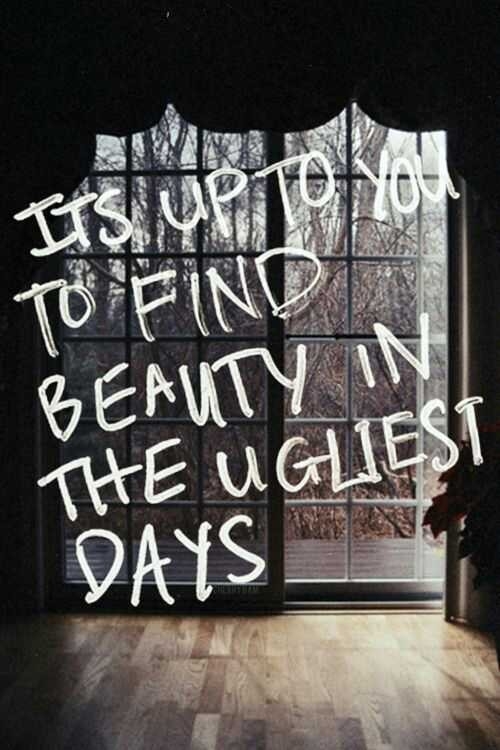 ITS UP TO YOU
TO FIND
BEAUTY IN
THE UGLIEST
DAYS